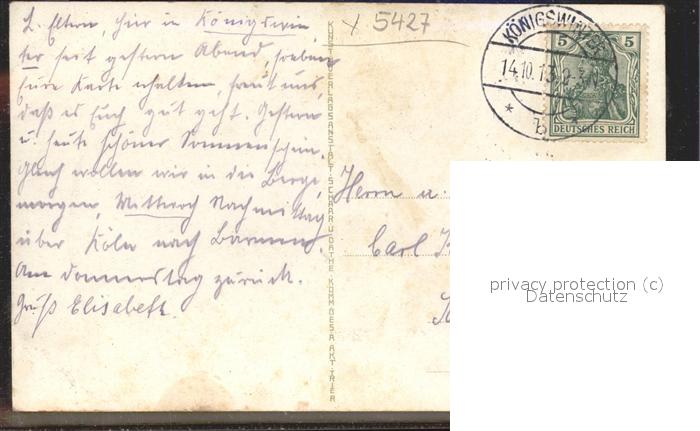 L. Eltern, hier in Königswin
ter seit gestern Abend, soeben
Eure Karte erhalten, freut uns,
daß es Euch gut geht. Gestern
u. heute schöner Sonnenschein.
Gleich wollen wir in die Berge,
morgen, Mittwoch Nachmittag
über Köln nach Barmen.
Am Donnerstag zurück.
Gruß Elisabeth.
5427
KUNST-VERLAGSANSTALT SCHAAR U. DATHE KOMM.GES.A.AKT. TRIER
KÖNIGSWINTER
14.10.13
* b *
5 5
DEUTSCHES REICH
Herrn u.
Carl
privacy protection (c)
Datenschutz